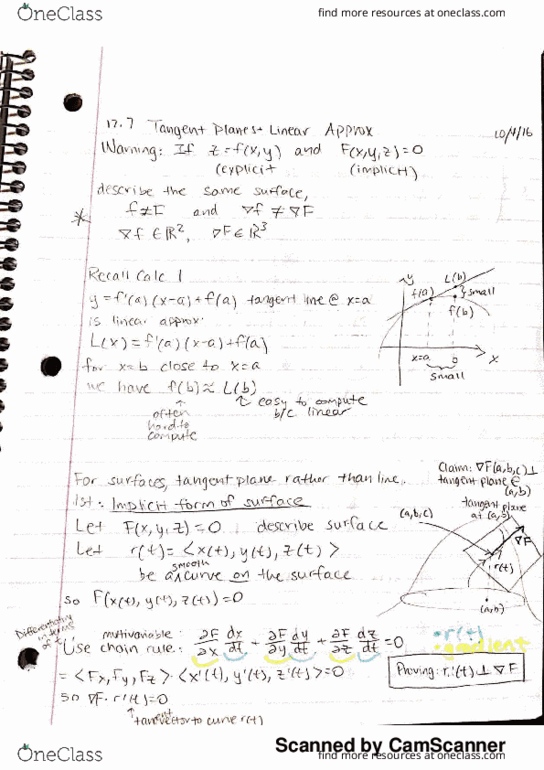 OneClass
find more resources at oneclass.com
12.7 Tangent Planes + Linear Approx
10/4/16
Warning: If z=f(x,y) and F(x,y,z)=0
(explicit (implicit)
describe the same surface,
* f≠F and ∇f ≠ ∇F
∇f ∈ ℝ², ∇F ∈ ℝ³
Recall Calc 1
y = f'(a)(x-a) + f(a) tangent line @ x=a
is linear approx.
L(x) = f'(a)(x-a) + f(a)
for x=b close to x=a
we have f(b) ≈ L(b)
↑ often hard to compute
↑ easy to compute b/c linear
y
L(b)
f(a)
} small
f(b)
x=a b x
small
For surfaces, tangent plane rather than line.
Claim: ∇F(a,b,c) ⊥
tangent plane @
(a,b)
1st: Implicit form of surface
Let F(x,y,z)=0 describe surface
Let r(t) = <x(t), y(t), z(t)>
smooth
be a curve on the surface
so F(x(t), y(t), z(t)) = 0
tangent plane
at (a,b)
(a,b,c)
∇F
r(t)
(a,b)
Differentiating
in terms
of t
multivariable:
Use chain rule: ∂F/∂x dx/dt + ∂F/∂y dy/dt + ∂F/∂z dz/dt = 0
• r'(t)
• gradient
= <Fx, Fy, Fz> · <x'(t), y'(t), z'(t)> = 0
Proving: r'(t) ⊥ ∇F
so ∇F · r'(t) = 0
↑ tangent vector to curve r(t)
Scanned by CamScanner
OneClass
find more resources at oneclass.com